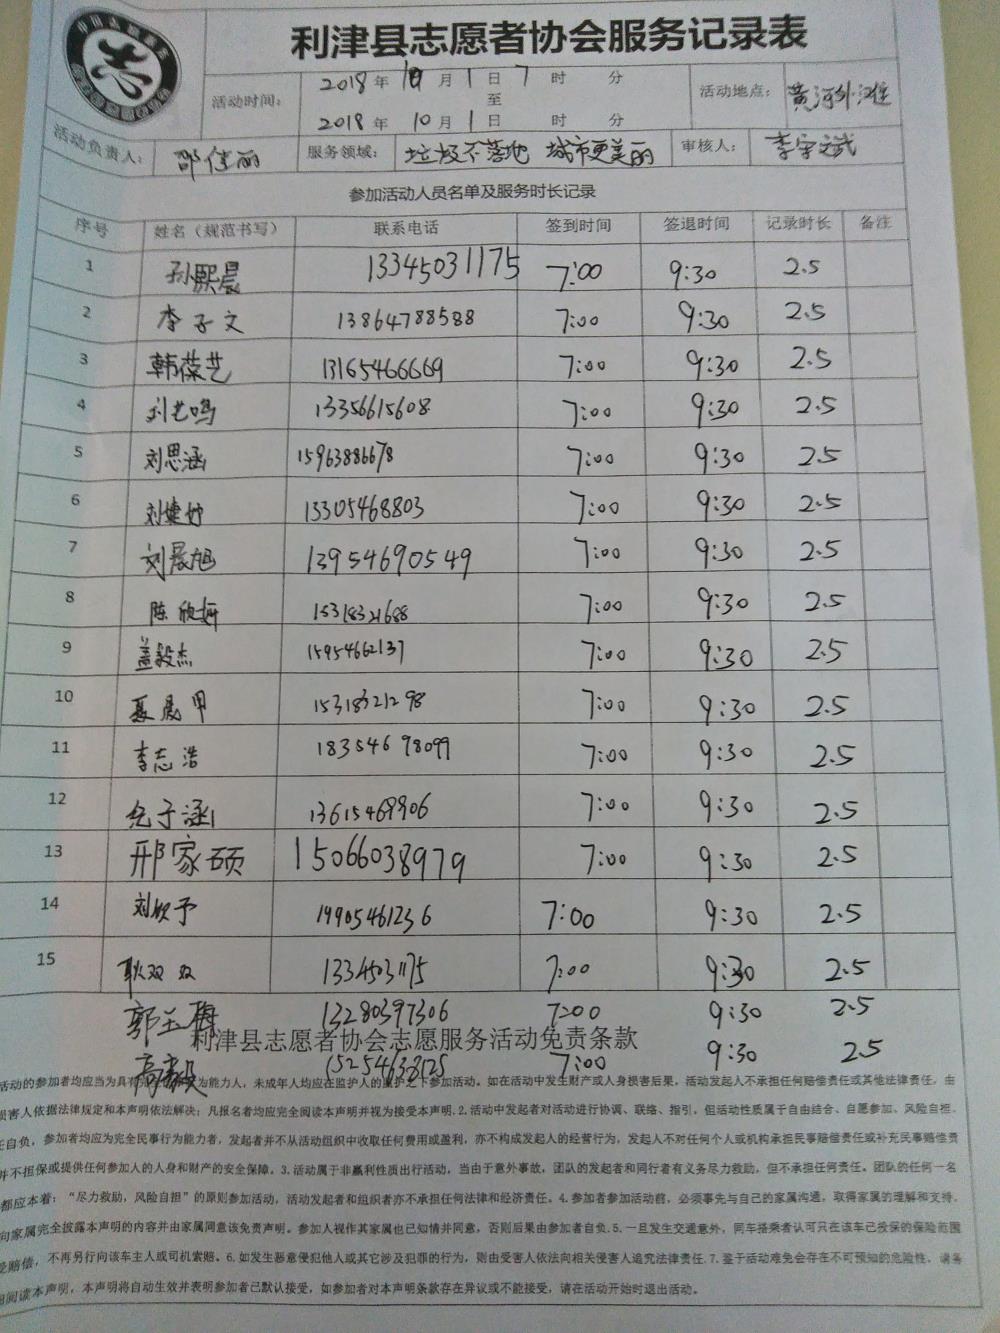 利津县志愿者协会服务记录表
活动时间： 2018 年 10 月 1 日 7 时 分
至
2018 年 10 月 1 日 时 分
活动地点： 黄河外滩
活动负责人： 邵佳丽 服务领域： 垃圾不落地 城市更美丽 审核人： 李宇斌
参加活动人员名单及服务时长记录
序号 姓名（规范书写） 联系电话 签到时间 签退时间 记录时长 备注
1 孙熙晨 13345031175 7:00 9:30 2.5
2 李子文 13864788588 7:00 9:30 2.5
3 韩葆艺 13165466669 7:00 9:30 2.5
4 刘艺鸣 13356615608 7:00 9:30 2.5
5 刘思涵 15963886678 7:00 9:30 2.5
6 刘婕妤 13305468803 7:00 9:30 2.5
7 刘晨旭 13954690549 7:00 9:30 2.5
8 陈欣妍 15318321688 7:00 9:30 2.5
9 盖毅杰 15954662137 7:00 9:30 2.5
10 夏晟甲 15318321298 7:00 9:30 2.5
11 李志浩 18354698099 7:00 9:30 2.5
12 子涵 13615469906 7:00 9:30 2.5
13 邢家硕 15066038979 7:00 9:30 2.5
14 刘欣予 19905461236 7:00 9:30 2.5
15 耿双双 13345031175 7:00 9:30 2.5
郭玉梅 13280397306 7:00 9:30 2.5
利津县志愿者协会志愿服务活动免责条款
高毅 15254638125 7:00 9:30 2.5
活动的参加者均应当为具有 为能力人，未成年人均应在监护人的监护之下参加活动。如在活动中发生财产或人身损害后果，活动发起人不承担任何赔偿责任或其他法律责任，由
损害人依据法律规定和本声明依法解决；凡报名者均应完全阅读本声明并视为接受本声明.2.活动中发起者对活动进行协调、联络、指引，但活动性质属于自由结合、自愿参加、风险自担、
任自负，参加者均应为完全民事行为能力者，发起者并不从活动组织中收取任何费用或盈利，亦不构成发起人的经营行为，发起人不对任何个人或机构承担民事赔偿责任或补充民事赔偿责
并不担保或提供任何参加人的人身和财产的安全保障。3.活动属于非赢利性质出行活动，当由于意外事故，团队的发起者和同行者有义务尽力救助，但不承担任何责任。团队的任何一名
都应本着：“尽力救助，风险自担”的原则参加活动，活动发起者和组织者亦不承担任何法律和经济责任。4.参加者参加活动前，必须事先与自己的家属沟通，取得家属的理解和支持。
向家属完全披露本声明的内容并由家属同意该免责声明。参加人视作其家属也已知情并同意，否则后果由参加者自负.5.一旦发生交通意外，同车搭乘者认可只在该车已投保的保险范围
受赔偿，不再另行向该车主人或司机索赔。6.如发生恶意侵犯他人或其它涉及犯罪的行为，则由受害人依法向相关侵害人追究法律责任.7.鉴于活动难免会存在不可预知的危险性，请务
阅读本声明，本声明将自动生效并表明参加者已默认接受，如参加者对本声明条款存在异议或不能接受，请在活动开始时退出活动。